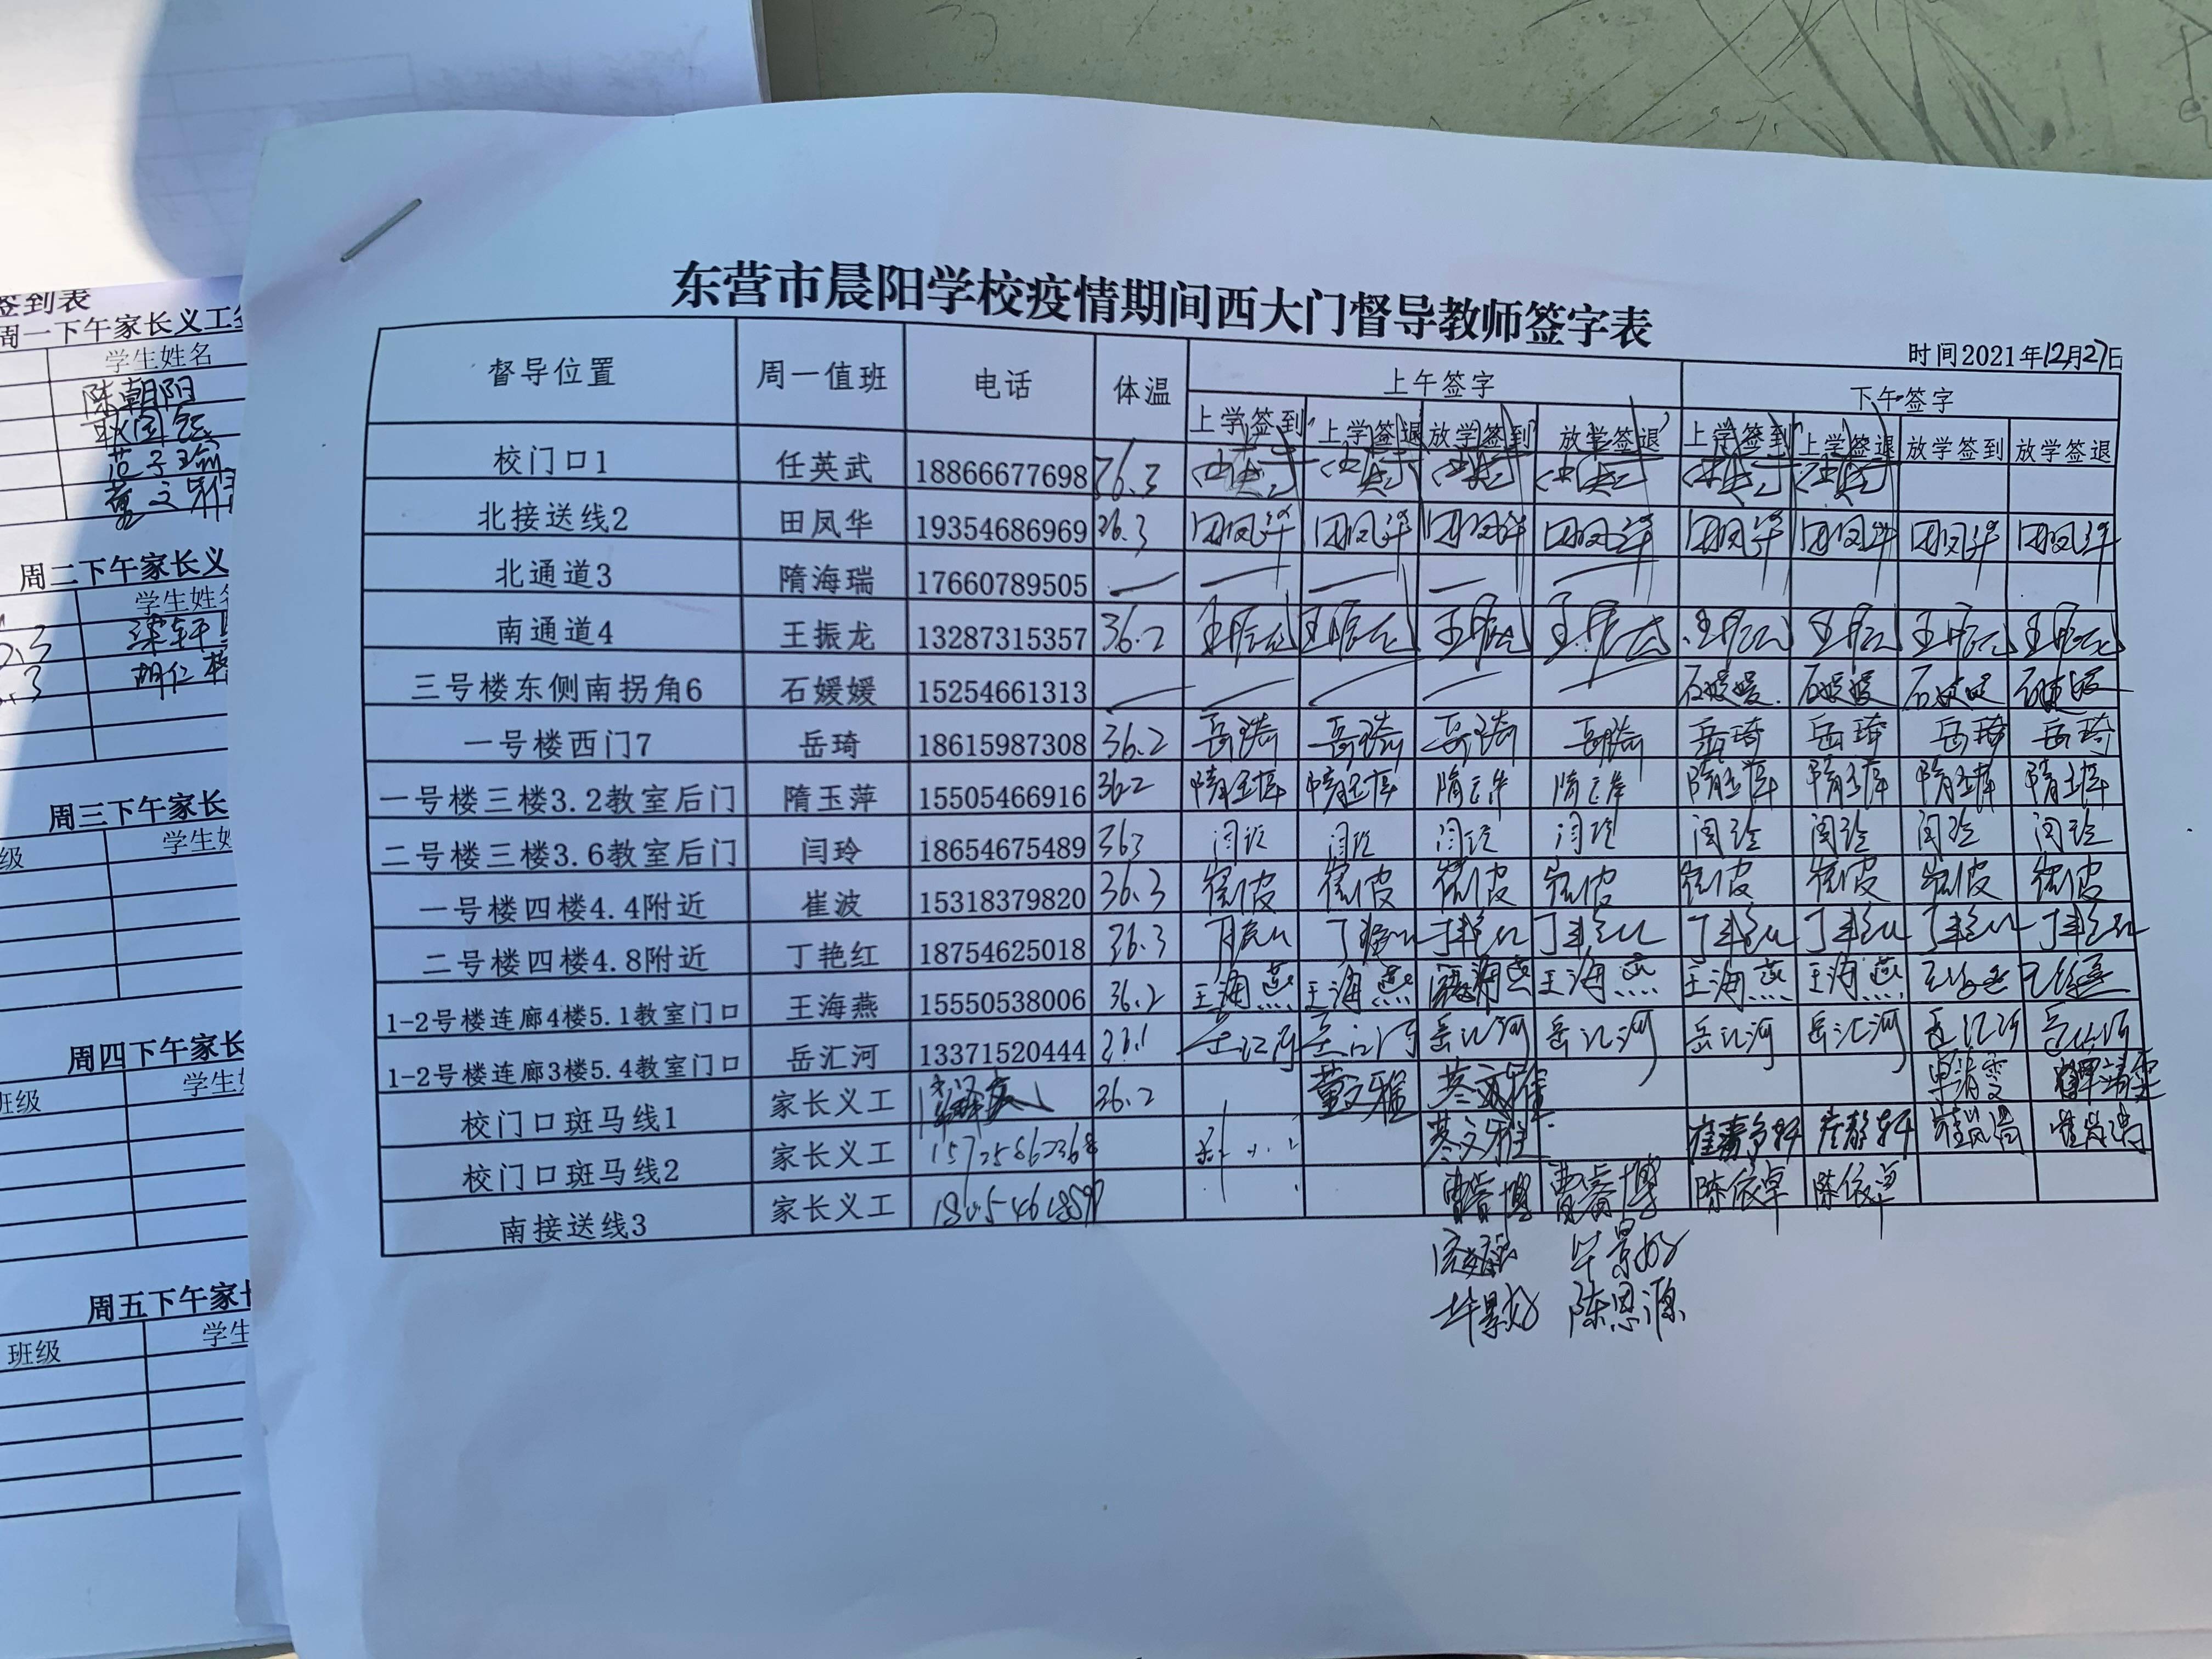 签到表
周一下午家长义工签
学生姓名
陈朝阳
周二下午家长义
学生姓名
周三下午家长
级 学生姓
周四下午家长
班级 学生
周五下午家长
班级 学生
东营市晨阳学校疫情期间西大门督导教师签字表
时间2021年12月27日
督导位置 周一值班 电话 体温 上午签字 下午签字
上学签到 上学签退 放学签到 放学签退 上学签到 上学签退 放学签到 放学签退
校门口1 任英武 18866677698 36.3
北接送线2 田凤华 19354686969 36.3 田凤华 田凤华 田凤华 田凤华 田凤华 田凤华 田凤华 田凤华
北通道3 隋海瑞 17660789505
南通道4 王振龙 13287315357 36.2 王振龙 王振龙 王振龙 王振龙 王振龙 王振龙 王振龙 王振龙
三号楼东侧南拐角6 石媛媛 15254661313 石媛媛 石媛媛 石媛媛 石媛媛
一号楼西门7 岳琦 18615987308 36.2 岳琦 岳琦 岳琦 岳琦 岳琦 岳琦 岳琦 岳琦
一号楼三楼3.2教室后门 隋玉萍 15505466916 36.2 隋玉萍 隋玉萍 隋玉萍 隋玉萍 隋玉萍 隋玉萍 隋玉萍 隋玉萍
二号楼三楼3.6教室后门 闫玲 18654675489 363 闫玲 闫玲 闫玲 闫玲 闫玲 闫玲 闫玲 闫玲
一号楼四楼4.4附近 崔波 15318379820 36.3 崔波 崔波 崔波 崔波 崔波 崔波 崔波 崔波
二号楼四楼4.8附近 丁艳红 18754625018 36.3 丁艳红 丁艳红 丁艳红 丁艳红 丁艳红 丁艳红 丁艳红 丁艳红
1-2号楼连廊4楼5.1教室门口 王海燕 15550538006 36.2 王海燕 王海燕 王海燕 王海燕 王海燕 王海燕 王海燕 王海燕
1-2号楼连廊3楼5.4教室门口 岳汇河 13371520444 岳汇河 岳汇河 岳汇河 岳汇河 岳汇河 岳汇河 岳汇河 岳汇河
校门口斑马线1 家长义工 36.2 董文雅
校门口斑马线2 家长义工 15725862368
南接送线3 家长义工 陈依卓 陈依卓
陈思源